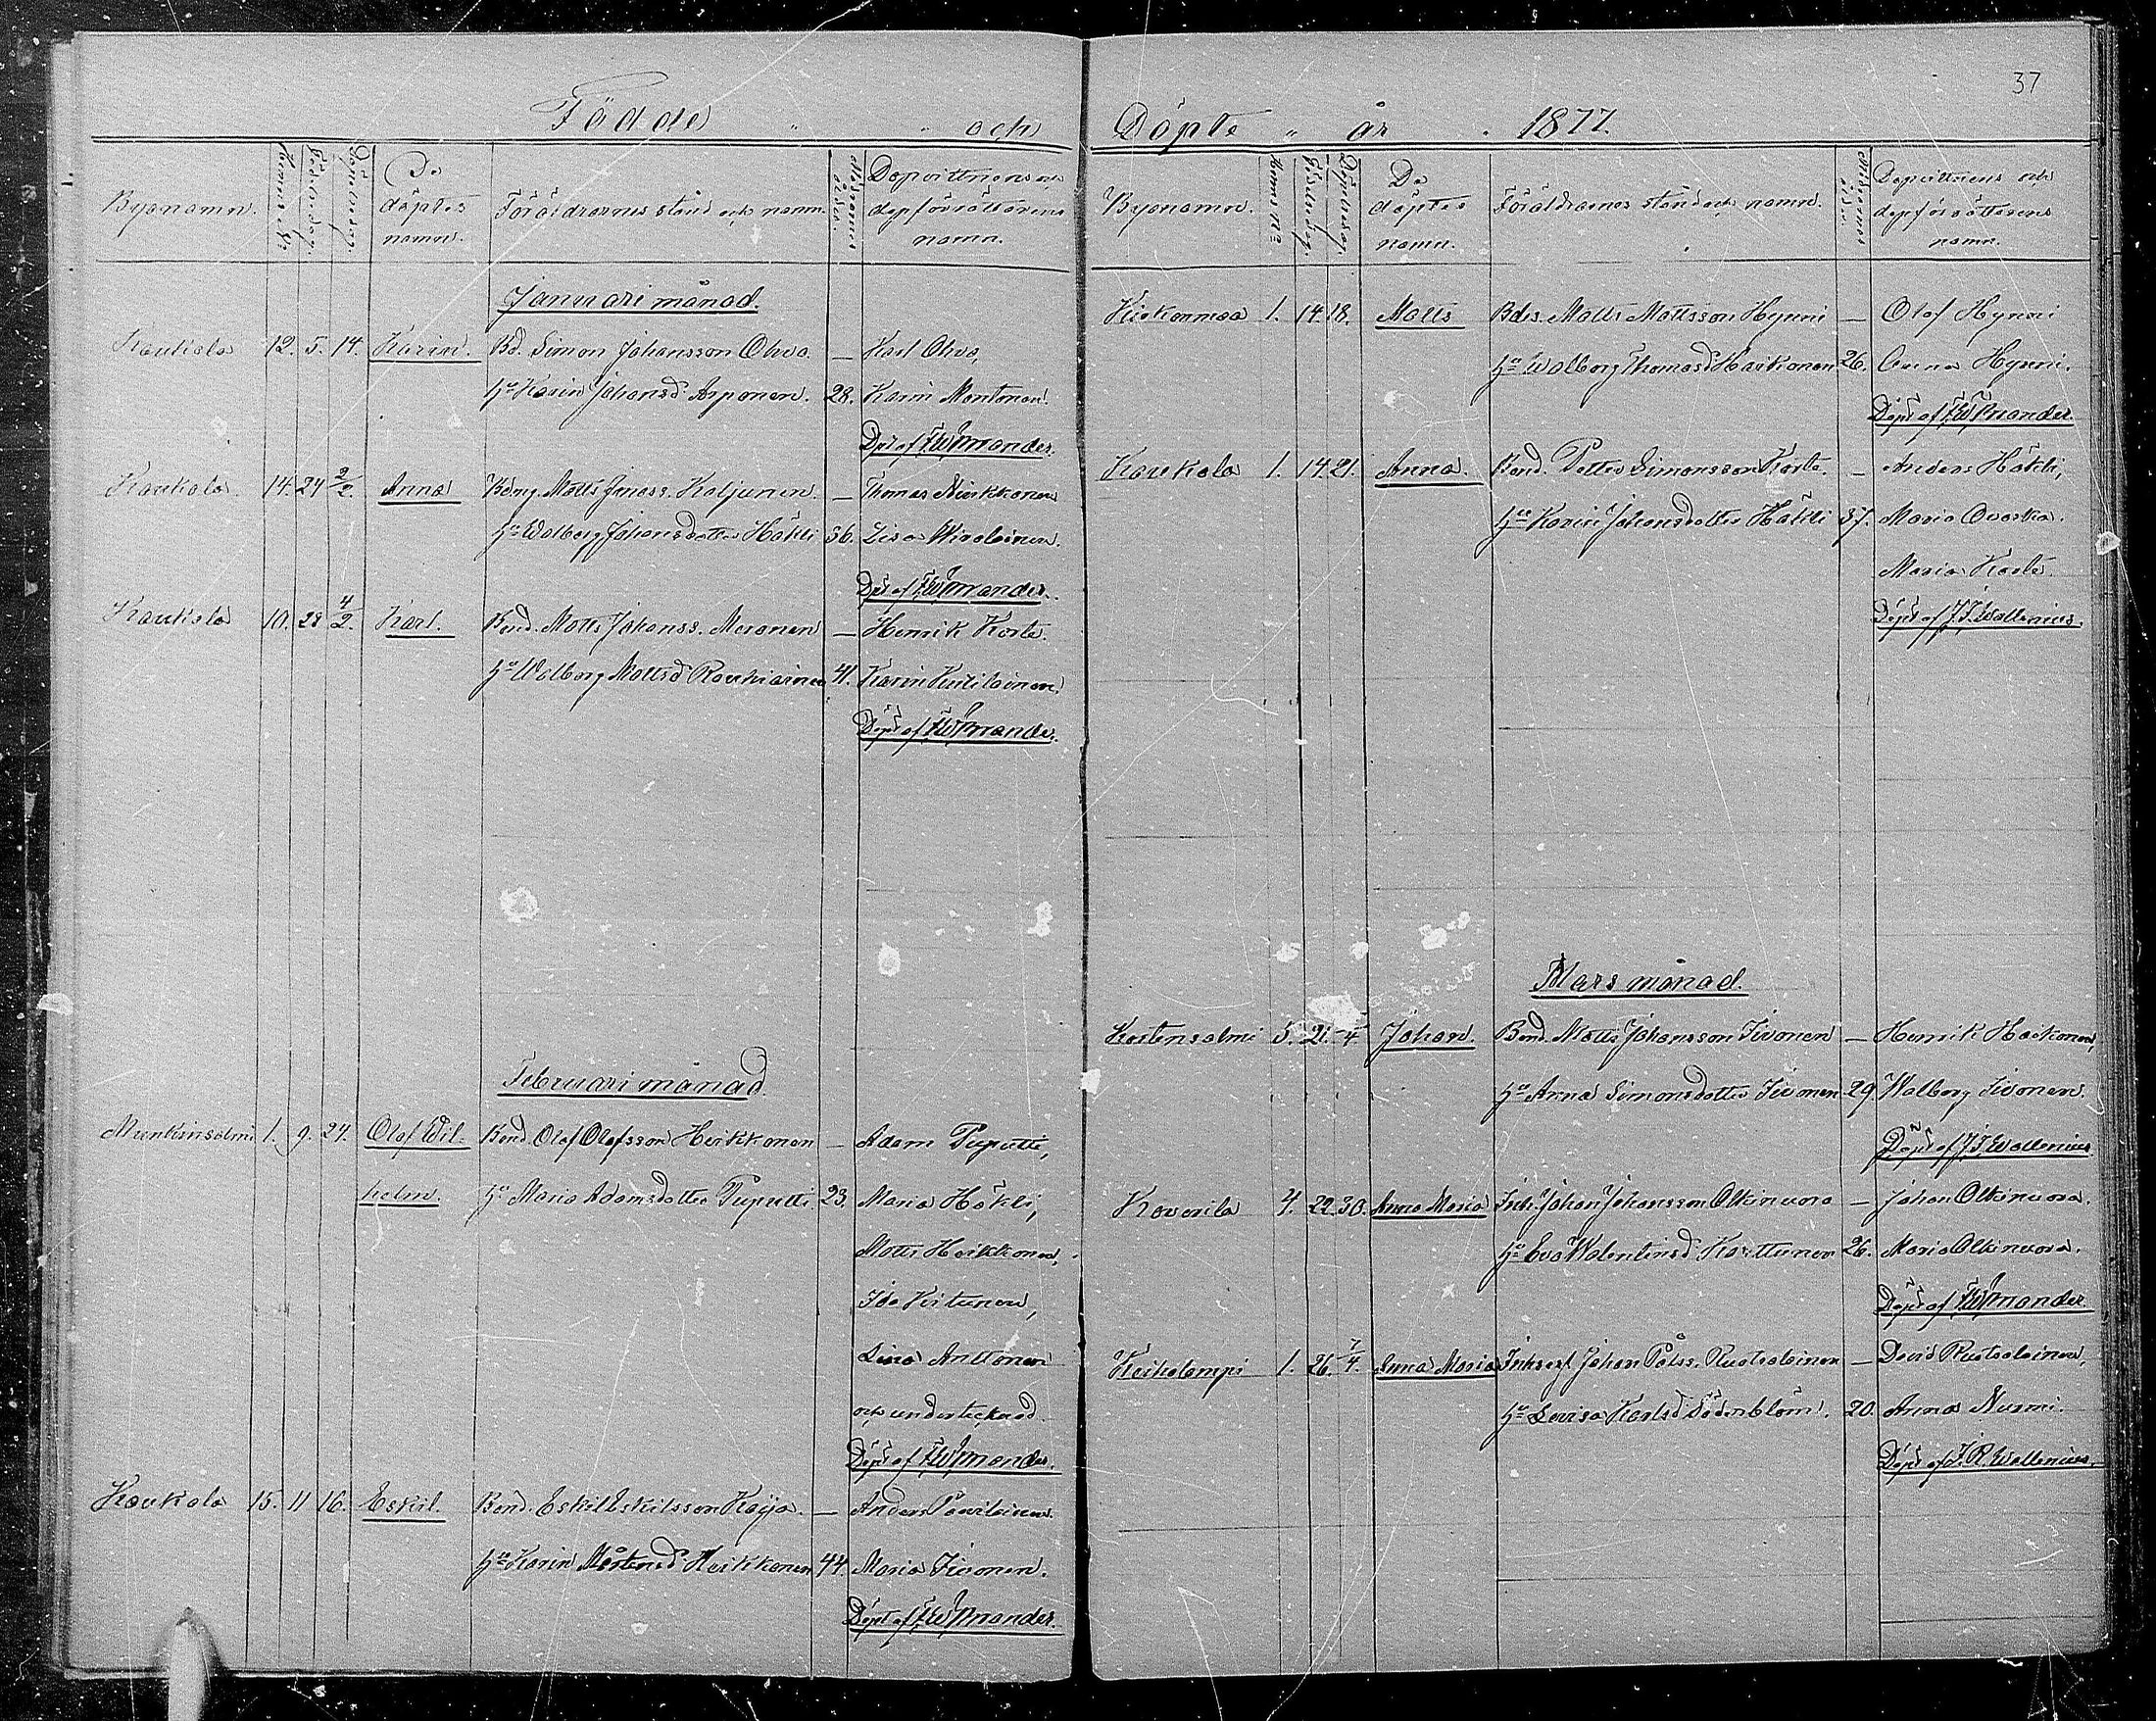 37
Födde och Döpte år 1877.
Byanamn. Födelsedag. Döpelsedag. De döptes namn. Föräldrarnes stånd och namn. Moderns ålder. Dopvittnens och dopförrättarens namn.
Januari månad.
Kaukola 12. 5. 14. Karin. Bd. Simon Johansson Ohvo. — Karl Ohvo,
hu Karin Johansd Arponen. 28. Karin Montonen.
Döpt af F.W. Brander.
Kaukola. 14. 24 2/2. Anna Matts Kaljunen. — Thomas
hu Walborg Johansdotter Häkli 36. Lisa
Döpt af F.W. Brander.
Kaukola 10. 28 4/2. Karl. Bond. Matts Johanss. Meronen — Henrik Korte.
hu Walborg Mattsd Rouhiainen 41. Karin Kutilainen.
Döpt af F.W. Brander.
Februari månad.
1. 9. 24. Olof Wil- Bond. Olof Olofsson Heikkonen — Adam Puputti,
helm. hu Maria Adamsdotter Puputti 23. Maria Häkli,
Matts Heikkonen,
Ida
Lisa Anttonen
och undertecknad.
Döpt af F.W. Brander.
Kaukola 15. 11 16. Eskil. Bond. Eskil Eskilsson Kaija. — Anders Pavilainen.
hu Karin Mårtensd Heikkonen 44. Maria Sivonen.
Döpt af F.W. Brander.
Byanamn. Födelsedag. Döpelsedag. De döptes namn. Föräldrarnes stånd och namn. Moderns ålder. Dopvittnens och dopförrättarens namn.
1. 14. 18. Matts Bds. Matts Mattsson Hynni — Olof Hynni
hu Walborg Thomasd Haikonen 26. Anna Hynni.
Döpt af F.W. Brander
Kaukola 1. 14. 21. Anna. Bond. Petter Simonsson Korte. — Anders Häkli,
hu Karin Johansdotter Häkli 37. Maria Ovaska.
Maria Korte.
Döpt af J.J. Wallenius.
Mars månad.
Kortensalmi 5. 21. 4 Johan. Bond. Matts Johansson Sivonen — Henrik Haikonen,
hu Anna Simonsdotter Sivonen 29. Walborg Sivonen.
Döpt af J.J. Wallenius
Koverila 4. 22. 30. Anna Maria Inh. Johan Johansson Olkinuora — Johan Olkinuora.
hu Eva Walentinsd Karttunen 26. Maria Olkinuora.
Döpt af F.W. Brander.
1. 26. 7/4. Anna Maria Johan Pålss. Ruotsalainen — David Ruotsalainen,
hu Lovisa Karlsd Söderblom. 20. Anna Nurmi.
Döpt af J.R. Wallenius.